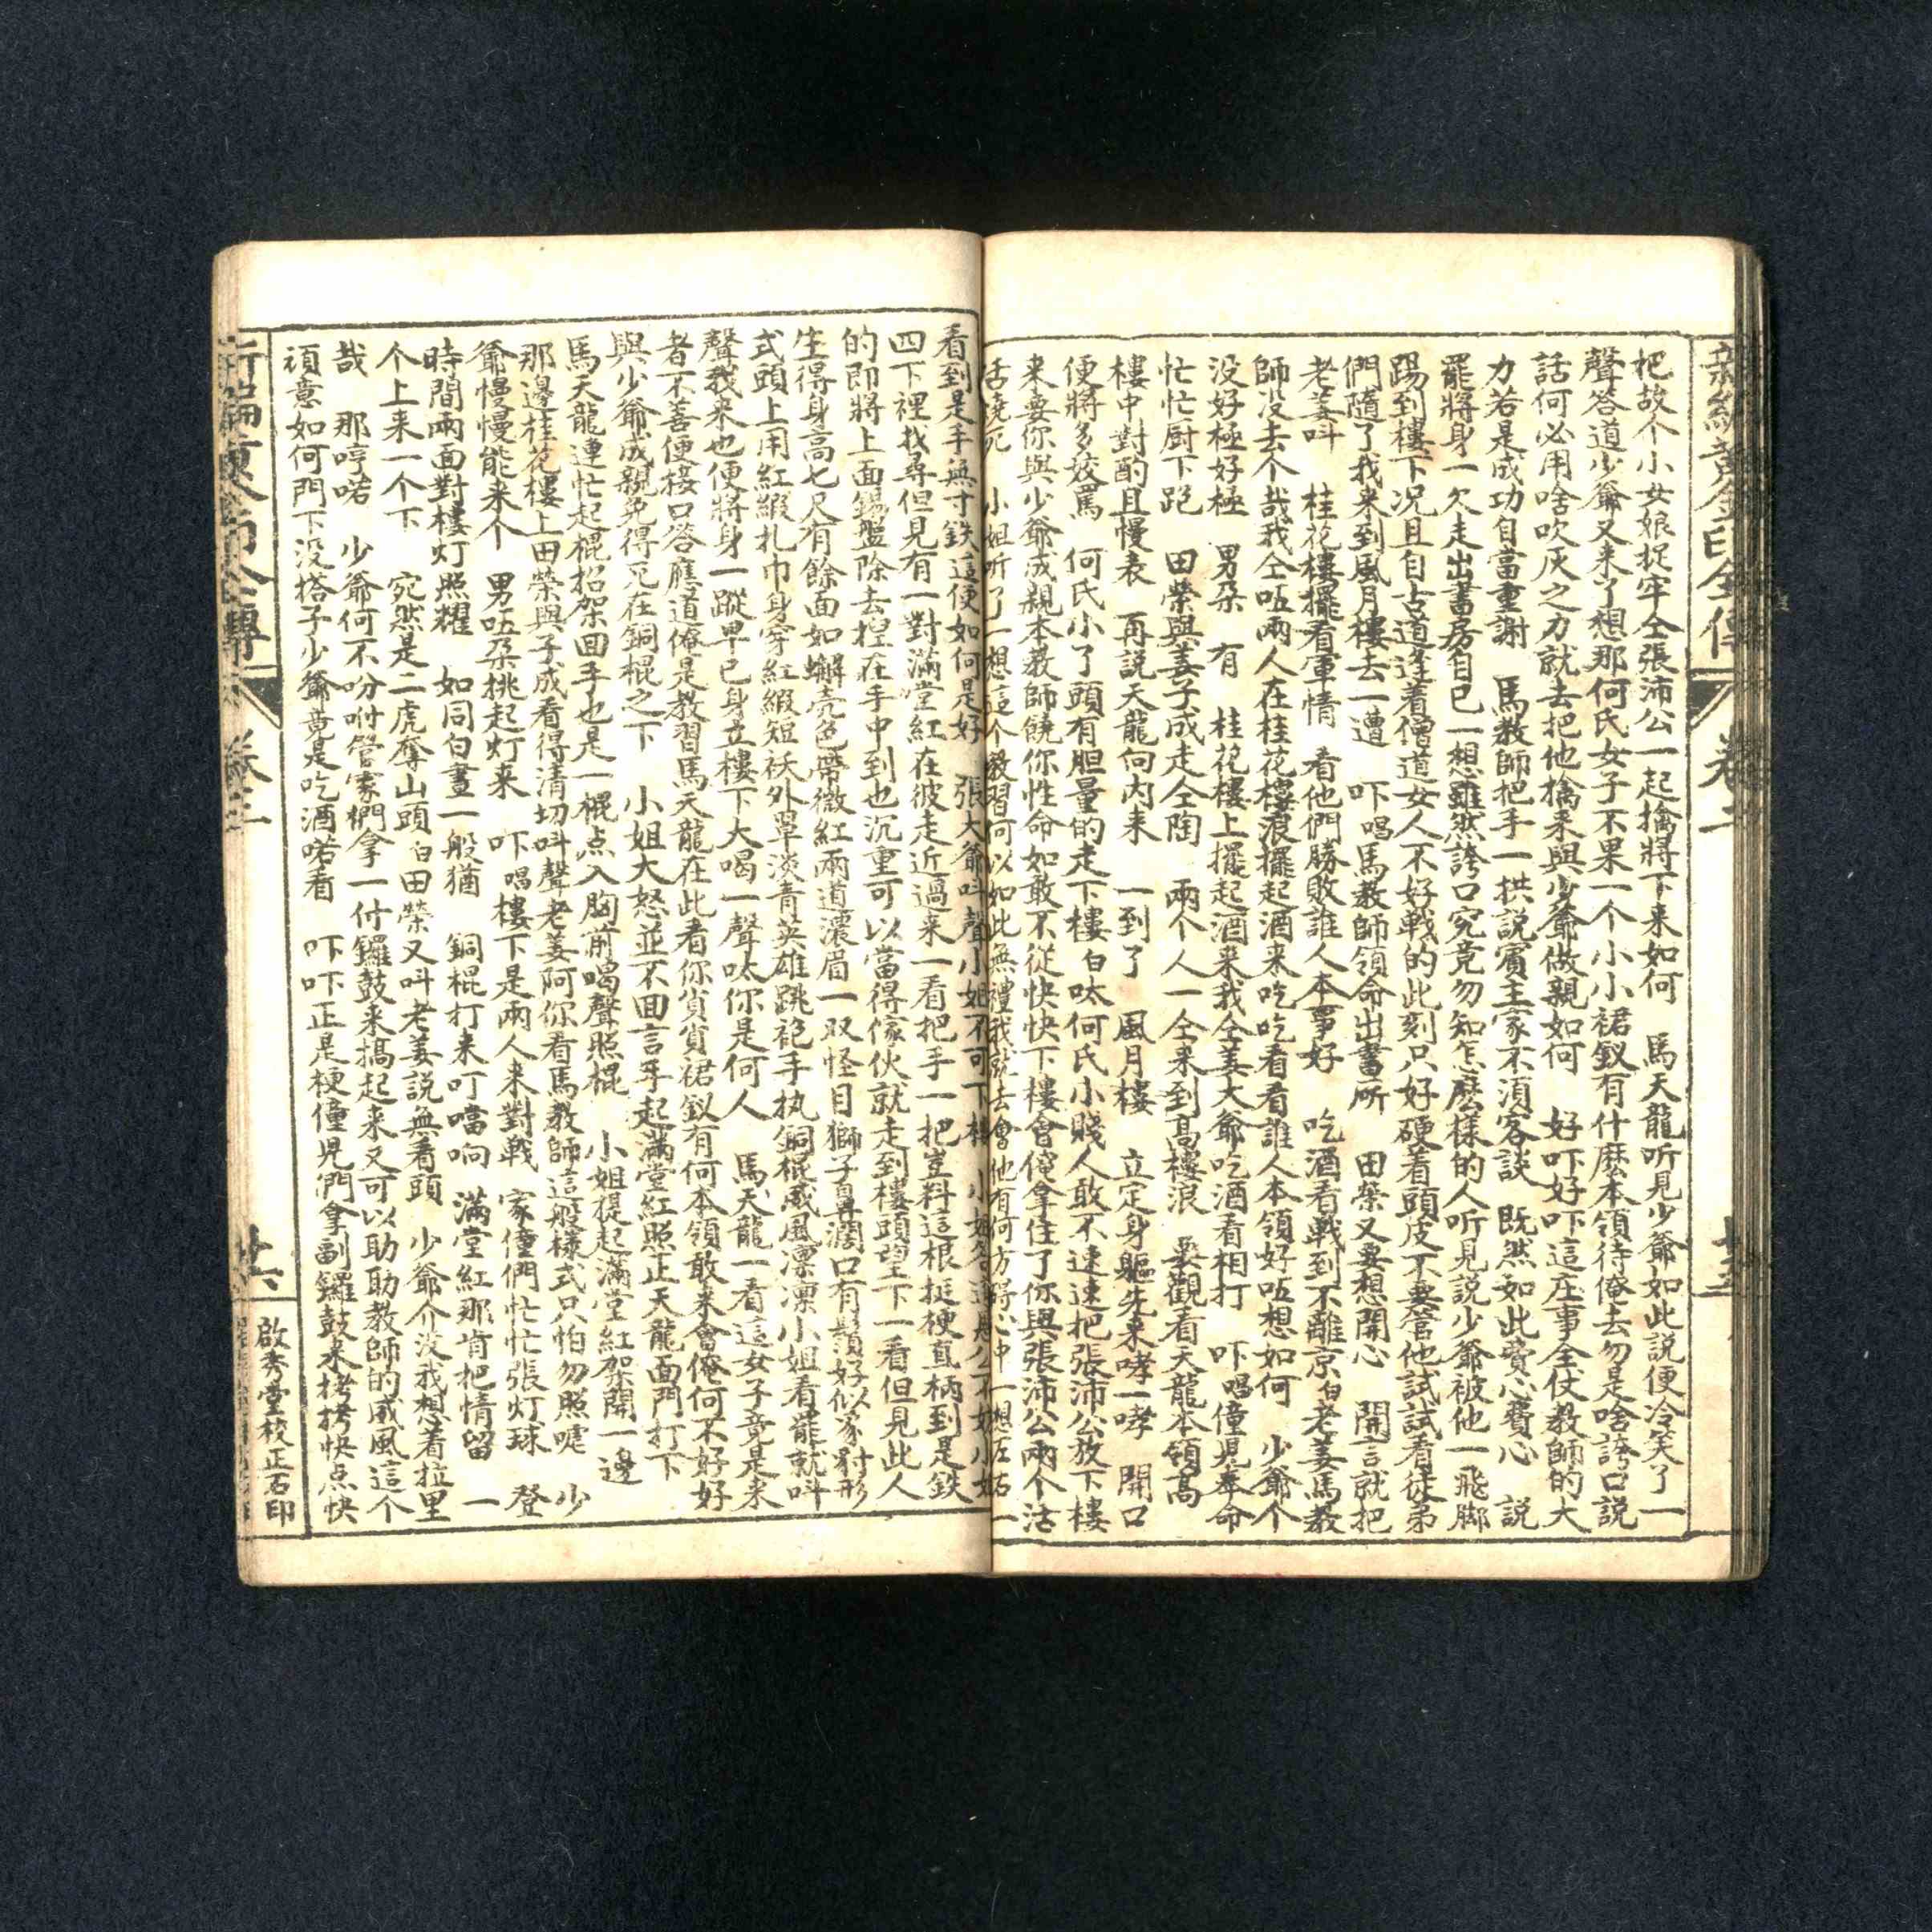 把故个小女娘捉牢仝張沛公一起擒將下来如何　馬天龍听見少爺如此説便冷笑了一
聲答道少爺又来了想那何氏女子不果一个小小裙釵有什麽本領待俺去勿是啥誇口説
話何必用啥吹灰之力就去把他擒来與少爺做親如何　好吓好吓這庄事全仗教師的大
力若是成功自當重謝　馬教師把手一拱説賓主家不須客談　既然如此費心費心　説
罷將身一欠走出書房自已一想雖然誇口究竟勿知怎麽樣的人听見説少爺被他一飛脚
踢到樓下况且自古道逢着僧道女人不好戰的此刻只好硬着頭皮不要管他試試看從弟
們隨了我来到風月樓去一遭　吓唱馬教師領命出書所　田榮又要想開心　開言就把
老姜呌　桂花樓擺看軍情　看他們勝敗誰人本事好　吃酒看戰到不離京白老姜馬教
師没去个哉我仝咓兩人在桂花樓浪擺起酒来吃吃看看誰人本領好咓想如何　少爺个
没好極好極　男朶　有　桂花樓上擺起酒来我仝姜大爺吃酒看相打　吓唱僮児奉命
忙忙厨下跑　田榮與姜子成走仝陶　兩个人一仝来到高樓浪　要觀看天龍本領高
樓中對酌且慢表　再説天龍向内来　一到了　風月樓　立定身軀先来哮一哮　開口
便將多姣罵　何氏小了頭有胆量的走下樓白呔何氏小賤人敢不速速把張沛公放下樓
来要你與少爺成親本教師饒你性命如敢不從快快下樓會俺拿住了你與張沛公兩个活
活燒死　小姐听了一想這个教習何以如此無禮我就去會他有何方得心中一想左右一
看到是手無寸鉄這便如何是好　張大爺呌聲小姐不可下樓　小姐
四下裡找尋但見有一對滿堂紅在彼走近過来一看把手一把豈料這根挺梗直柄到是鉄
的即將上面錫盤除去揑在手中到也沉重可以當得傢伙就走到樓頭望下一看但見此人
生得身高七尺有餘面如蠏壳色帶微紅兩道濃眉一双怪目獅子鼻濶口有鬚好似豕豺形
式頭上用紅緞扎巾身穿紅緞短袄外罩淡青英雄跳袍手执銅棍威風凛凛小姐看罷就呌
聲我来也便將身一蹤早已身立樓下大喝一聲呔你是何人　馬天龍一看這女子竟是来
者不善便接口答應道俺是教習馬天龍在此看你貨貨裙釵有何本領敢来會俺何不好好
與少爺成親免得死在銅棍之下　小姐大怒並不回言手起滿堂紅照正天龍面門打下
馬天龍連忙起棍招架回手也是一棍点入胸前喝聲照棍　小姐提起滿堂紅架開一邊
那邊桂花樓上田榮與子成看得清切呌聲老姜阿你看馬教師這般樣式只怕勿照嘘　少
爺慢慢能来个　男咓朶挑起灯来　吓唱樓下是兩人来對戰　家僮們忙忙張灯球　登
時間兩面對樓灯照耀　如同白晝一般猶　銅棍打来叮噹响　滿堂紅那肯把情留　一
个上来一个下　宛然是二虎奪山頭白田榮又呌老姜説無看頭　少爺介没我想着拉里
哉　那哼啫　少爺何不吩咐管家們拿一付鑼鼓来搞起来又可以助助教師的威風這个
頑意如何門下没搭子少爺竟是吃酒啫看　吓吓正是梗僮児們拿副鑼鼓来拷拷快点快
卷三
廿六
啟秀堂校正石印